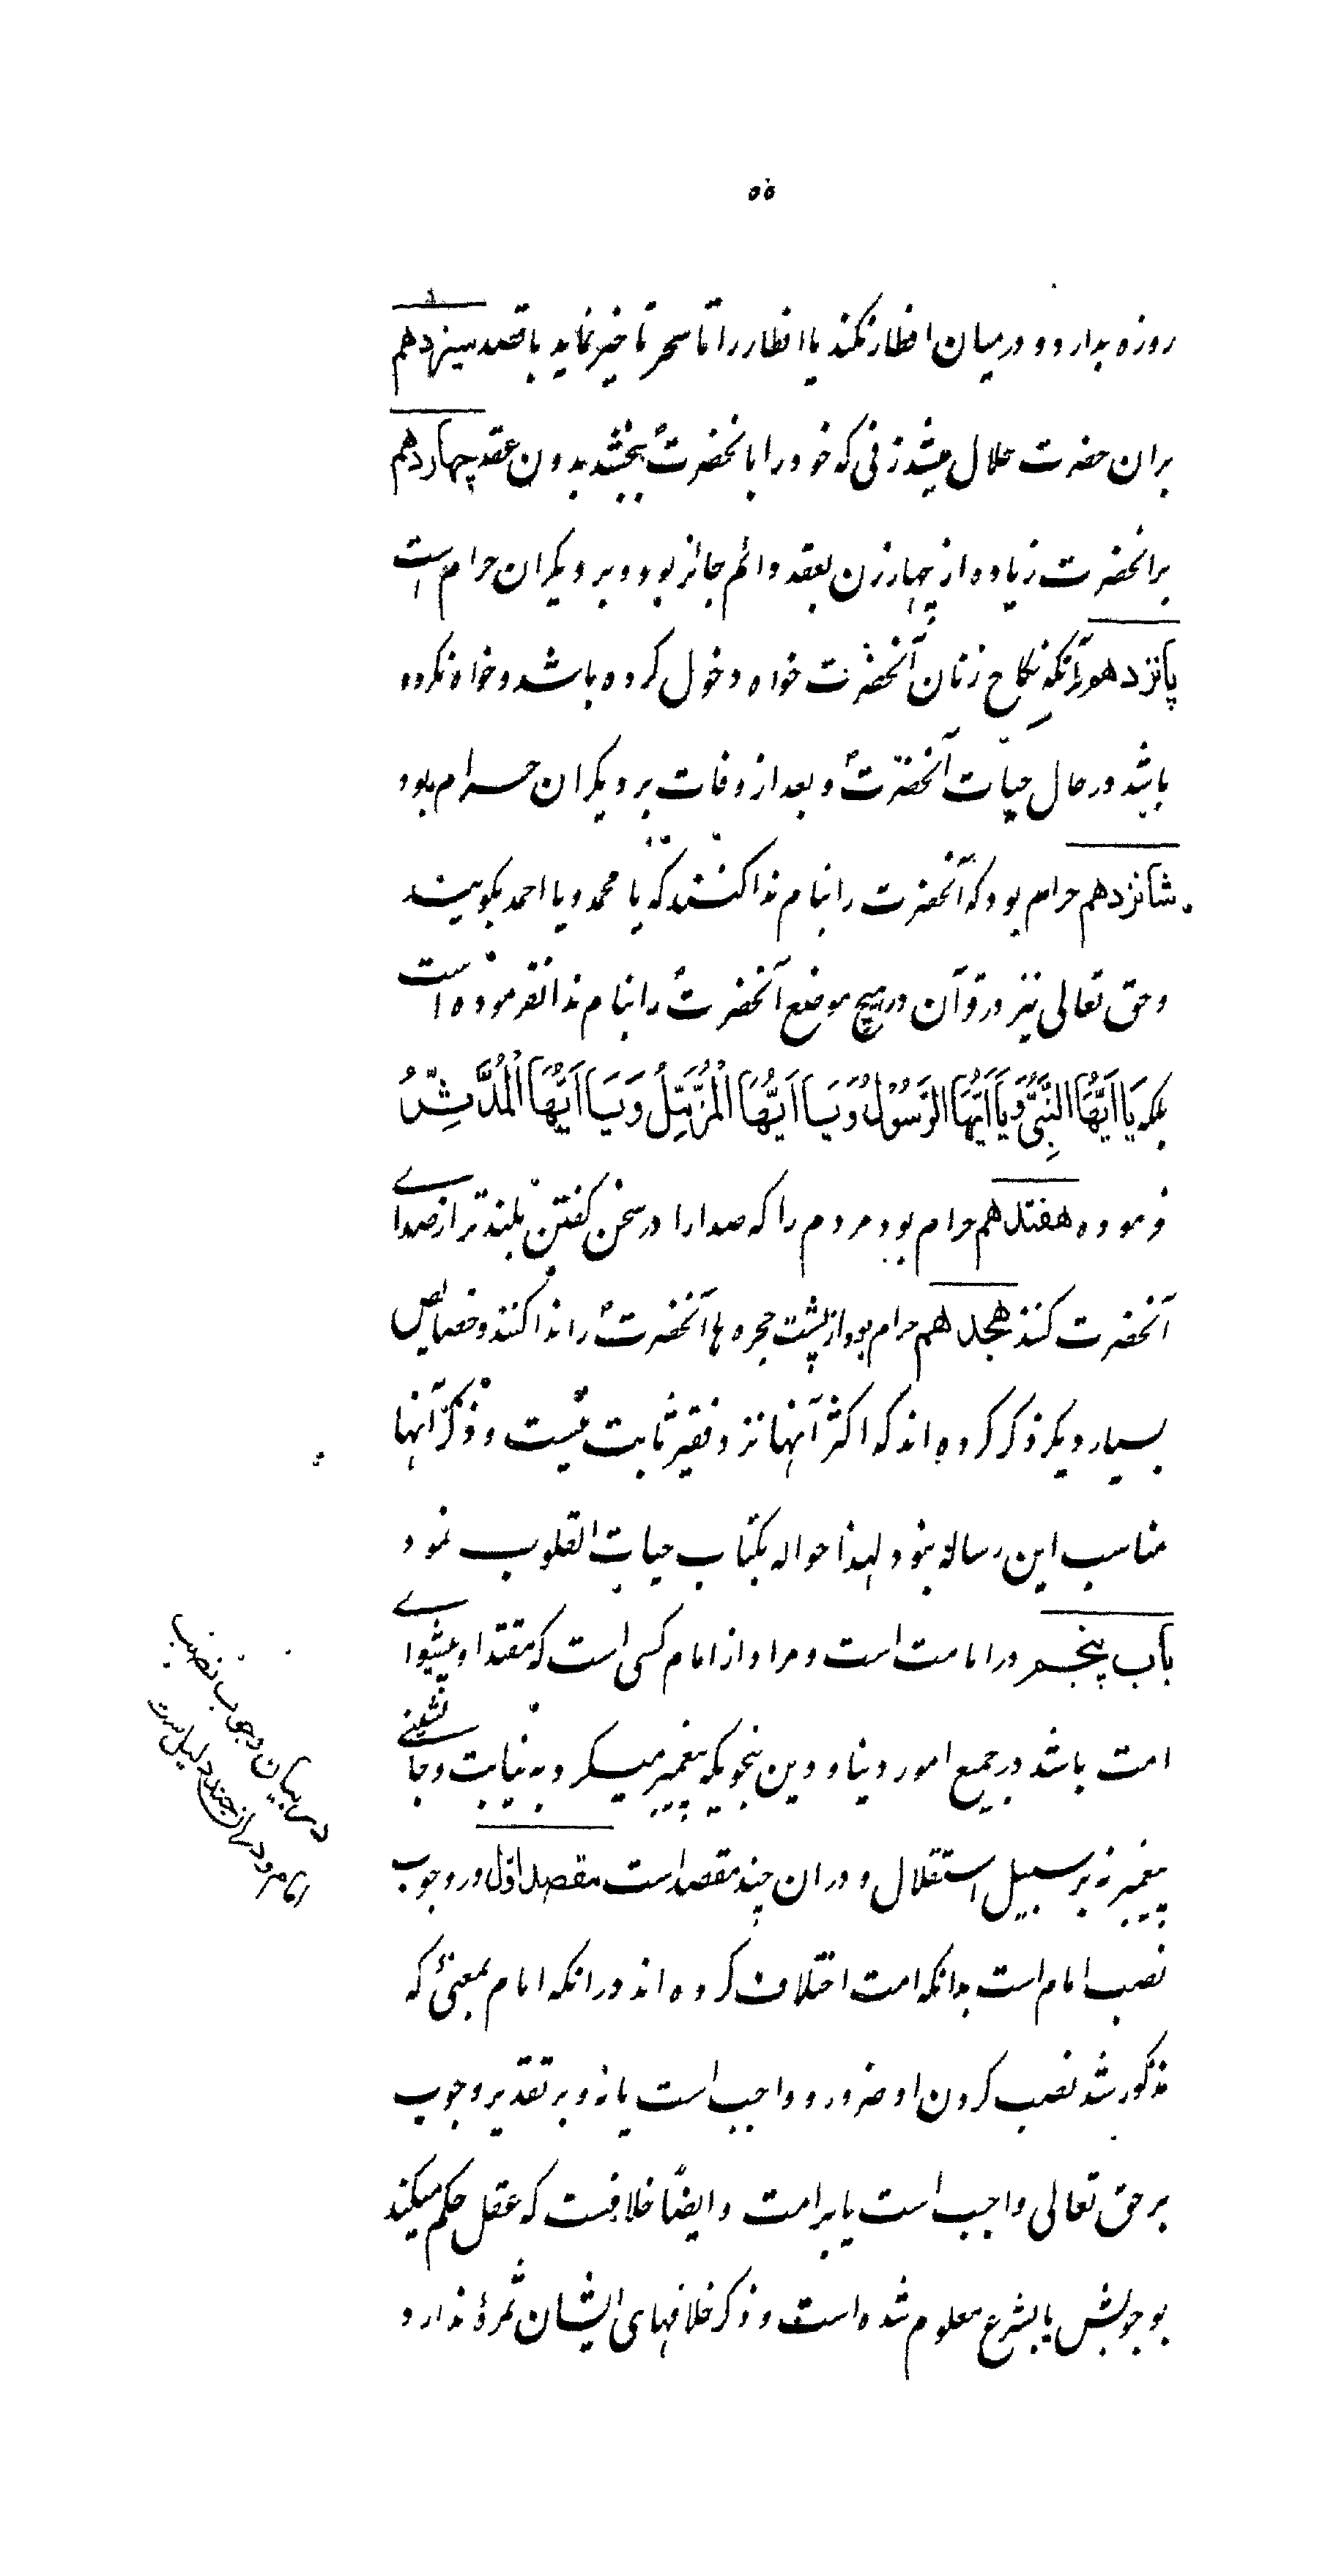 ۵۵
روزه بدارد و در میان افطار نکند یا افطار را تا سحر تاخیر نماید با قصد سیزدهم
بران حضرت حلال میشد زنی که خود را بانحضرتؐ بخشد بدون عقد چهاردهم
برانحضرت زیاده از چهار زن بعقد دائم جائز بود و بر دیگران حرام است
پانزدهم آنکه نکاح زنان آنحضرت خواه دخول کرده باشد و خواه نکرده
باشد در حال حیات آنحضرتؐ و بعد از وفات بر دیگران حرام بود
شانزدهم حرام بود که آنحضرت را بنام ندا کنند که یا محمد و یا احمد بگویند
و حق تعالی نیز در قرآن در هیچ موضع آنحضرتؐ را بنام ندا نفرموده است
بلکه یَا اَیُّهَا النَّبِیُّ وَ یَا اَیُّهَا الرَّسُوْلُ وَ یَا اَیُّهَا الْمُزَّمِّلُ وَ یَا اَیُّهَا الْمُدَّثِّرُ
فرموده هفتدهم حرام بود مردم را که صدا را در سخن گفتن بلندتر از صدای
آنحضرت کنند هجدهم حرام بود از پشت حجره ها آنحضرتؐ را ندا کنند و خصایص
بسیار دیگر ذکر کرده اند که اکثر آنها نزد فقیر ثابت نیست و ذکر آنها
مناسب این رساله نبود لهذا حواله بکتاب حیات القلوب نمود
باب پنجم در امامت است و مراد از امام کسی است که مقتدا و پیشوای
امت باشد در جمیع امور دنیا و دین بنحویکه پیغمبر میکرد به نیابت و جانشینی
پیغمبر نه بر سبیل استقلال و دران چند مقصد است مقصد اول در وجوب
نصب امام است بدانکه امت اختلاف کرده اند در انکه امام بمعنیٔ که
مذکور شد نصب کردن او ضرور و واجب است یا نه و بر تقدیر وجوب
بر حق تعالی واجب است یا بر امت و ایضًا خلافست که عقل حکم میکند
بوجوبش یا بشرع معلوم شده است و ذکر خلافهای ایشان ثمرهٔ ندارد
در بیان وجوب نصب
امام و دران چند دلیل است